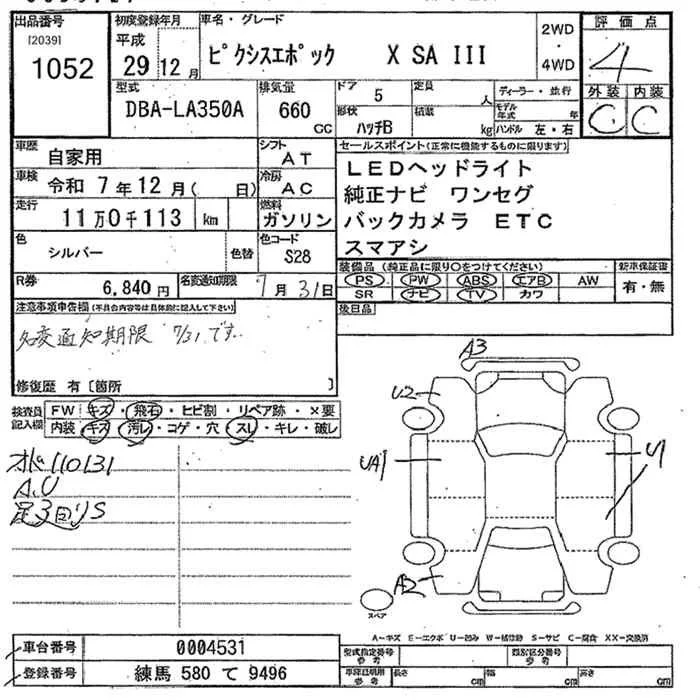 出品番号
[2039]
1052
初度登録年月
平成
29 12月
車名・グレード
ピクシスエポック X SA III
2WD
4WD
評価点
4
外装 内装
C C
型式
DBA-LA350A
排気量
660
cc
ドア
5
定員
人
形状
ハッチB
積装
kg
ディーラー・並行
モデル年式 年
ハンドル 左・右
車歴
自家用
シフト
AT
車検
令和 7年12月( 日)
冷房
AC
走行
11万0千113 km
燃料
ガソリン
色
シルバー
色替
色コード
S28
R券
6,840円
名変通知期限
7月31日
セールスポイント(正常に機能するものに限ります)
LEDヘッドライト
純正ナビ ワンセグ
バックカメラ ETC
スマアシ
装備品(純正品に限り〇をつけてください)
PS PW ABS エアB AW
SR ナビ TV カワ
新車保証書
有・無
後日品
注意事項申告欄(不具合内容等は具体的に記入して下さい)
名変通知期限 7/31です。
修復歴 有〔箇所 〕
検査員
記入欄
FW キズ・飛石・ヒビ割・リペア跡・×要
内装 キズ・汚レ・コゲ・穴・スレ・キレ・破レ
オド110131
A.U
足3回りS
A3
U2
UA1
U1
A2
スペア
A-キズ E-エクボ U-凹み W-補修跡 S-サビ C-腐食 XX-交換済
車台番号
0004531
登録番号
練馬 580 て 9496
型式指定番号
参考
類別区分番号
参考
車庫証明用
参考
長さ cm
幅 cm
高さ cm